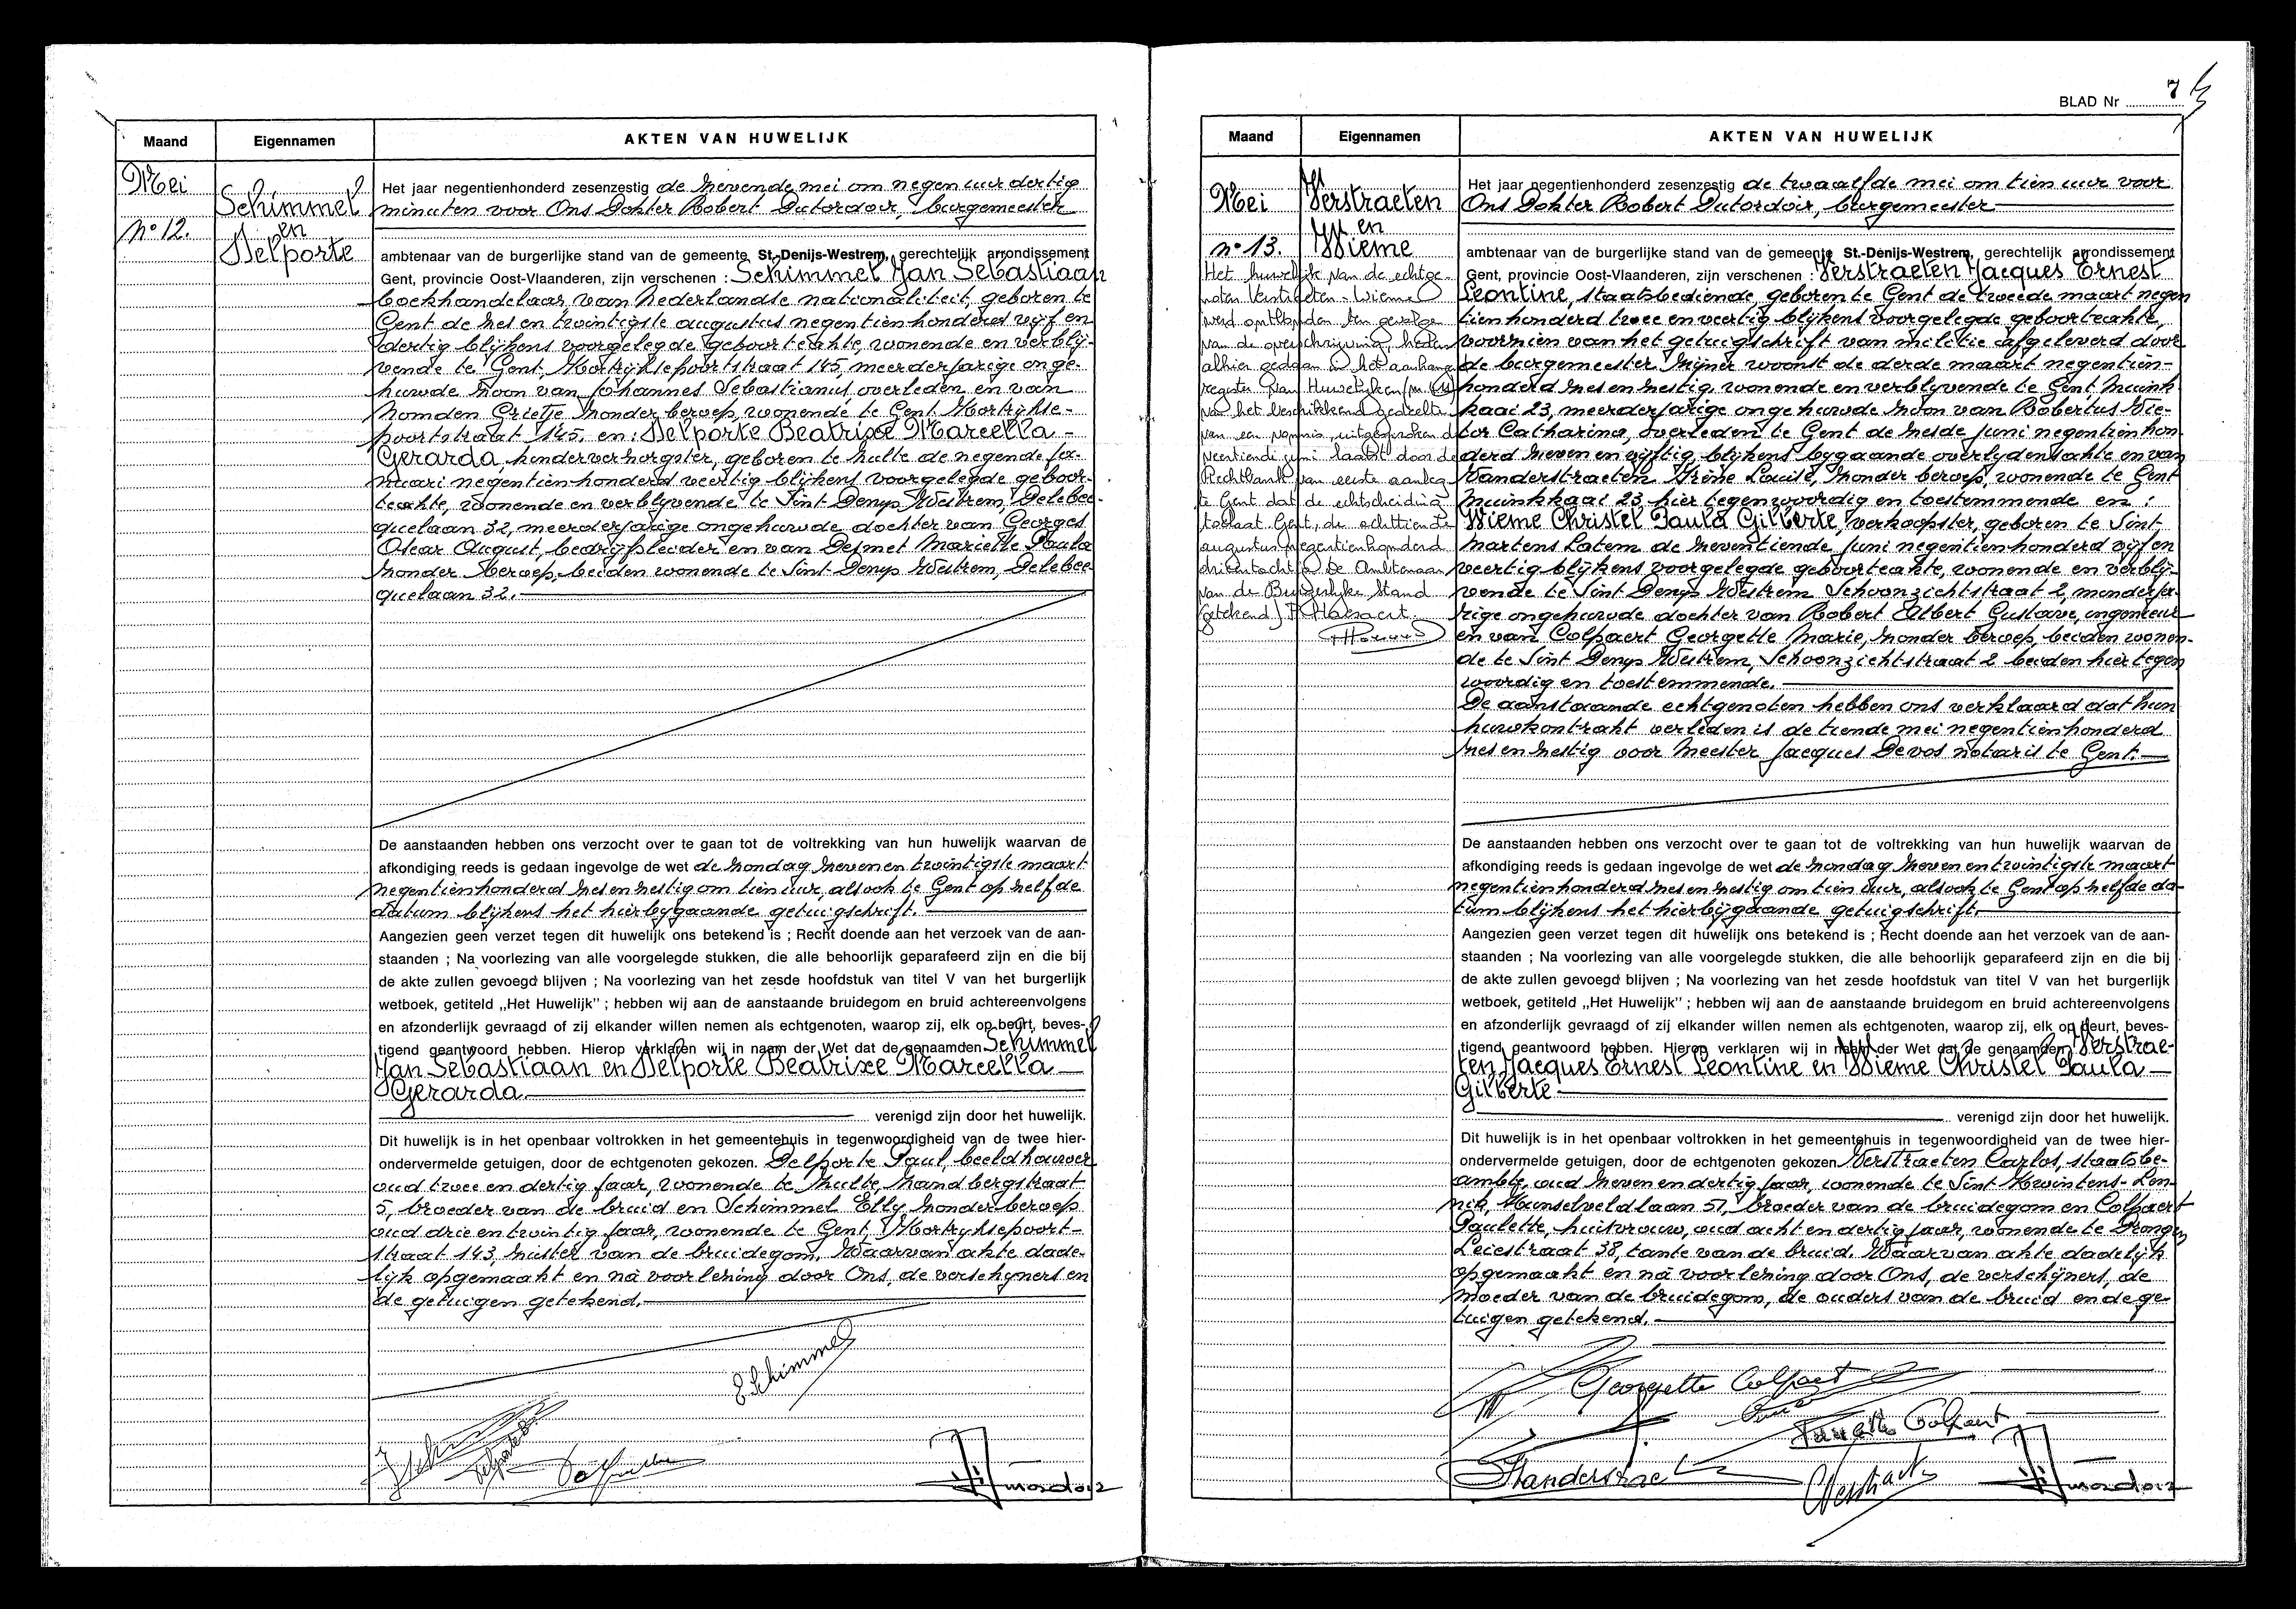 Maand
Eigennamen
AKTEN VAN HUWELIJK
Mei
Schimmel
nº 12.
en
Delporte
Het jaar negentienhonderd zesenzestig de zevende mei om negen uur dertig
minuten voor Ons Dokter Robert Dutordoir, burgemeester
ambtenaar van de burgerlijke stand van de gemeente St.-Denijs-Westrem, gerechtelijk arrondissement
Gent, provincie Oost-Vlaanderen, zijn verschenen : Schimmel Jan Sebastiaan
boekhandelaar, van Nederlandse nationaliteit, geboren te
Gent de zes en twintigste augustus negentienhonderd vijf en
dertig blijkens voorgelegde geboorteakte, wonende en verblij-
vende te Gent, Kortrijksepoortstraat 145, meerderjarige onge-
huwde zoon van Johannes Sebastianus overleden en van
Homden Grietje zonder beroep, wonende te Gent Kortrijkse-
poortstraat 145, en: Delporte Beatrixe Marcella
Gerarda, kinderverzorgster, geboren te Zulte de negende ja-
nuari negentienhonderd veertig blijkens voorgelegde geboor-
teakte, wonende en verblyvende te Sint Denys Westrem, Gelebee-
quelaan 32, meerderjarige ongehuwde dochter van Georges
Oscar August, bedrijfsleider en van Desmet Mariette Paula
zonder beroep, beiden wonende te Sint Denys Westrem, Gelebee-
quelaan 32.
De aanstaanden hebben ons verzocht over te gaan tot de voltrekking van hun huwelijk waarvan de
afkondiging reeds is gedaan ingevolge de wet de zondag zeven en twintigste maart
negentienhonderd zes en zestig om tien uur, alsook te Gent op zelfde
datum blijkens het hierbygaande getuigschrift.
Aangezien geen verzet tegen dit huwelijk ons betekend is ; Recht doende aan het verzoek van de aan-
staanden ; Na voorlezing van alle voorgelegde stukken, die alle behoorlijk geparafeerd zijn en die bij
de akte zullen gevoegd blijven ; Na voorlezing van het zesde hoofdstuk van titel V van het burgerlijk
wetboek, getiteld „Het Huwelijk" ; hebben wij aan de aanstaande bruidegom en bruid achtereenvolgens
en afzonderlijk gevraagd of zij elkander willen nemen als echtgenoten, waarop zij, elk op beurt, beves-
tigend geantwoord hebben. Hierop verklaren wij in naam der Wet dat de genaamden Schimmel
Jan Sebastiaan en Delporte Beatrixe Marcella
Gerarda
verenigd zijn door het huwelijk.
Dit huwelijk is in het openbaar voltrokken in het gemeentehuis in tegenwoordigheid van de twee hier-
ondervermelde getuigen, door de echtgenoten gekozen. Delporte Paul, beeldhouwer
oud twee en dertig jaar, wonende te Zulte, Zandbergstraat
5, broeder van de bruid en Schimmel Elly zonder beroep
oud drie en twintig jaar, wonende te Gent, Kortryksepoort-
straat 143, zuster van de bruidegom. Waarvan akte dade-
lijk opgemaakt en na voorlezing door Ons, de verschyners en
de getuigen getekend.
E Schimmel
BLAD Nr 7
Maand
Eigennamen
AKTEN VAN HUWELIJK
Mei
Verstraeten
en
nº 13.
Wieme
Het huwelijk van de echtge-
noten Verstraeten - Wieme
werd ontbonden ten gevolge
van de overschrijving, heden
alhier gedaan in het aanhang-
register van Huwelijken
van het beschikkend gedeelte
van een vonnis, uitgesproken de
veertiende juni laatst door de
Rechtbank van eerste aanleg
te Gent dat de echtscheiding
toelaat. Gent, de achttiende
augustus negentienhonderd
drieëntachtig De Ambtenaar
van de Burgerlijke Stand
(getekend)
Het jaar negentienhonderd zesenzestig de twaalfde mei om tien uur voor
Ons Dokter Robert Dutordoir, burgemeester
ambtenaar van de burgerlijke stand van de gemeente St.-Denijs-Westrem, gerechtelijk arrondissement
Gent, provincie Oost-Vlaanderen, zijn verschenen : Verstraeten Jacques Ernest
Leontine, staatsbediende, geboren te Gent de tweede maart negen
tienhonderd twee en veertig blijkens voorgelegde geboorteakte,
voorzien van het getuigschrift van militie afgeleverd door
de burgemeester zijner woonst de derde maart negentien-
honderd zes en zestig, wonende en verblyvende te Gent, Muink
kaai 23, meerderjarige ongehuwde zoon van Robertus Vic-
tor Catharina, overleden te Gent de zesde juni negentien hon
derd zeven en vijftig, blijkens bygaande overlydensakte en van
Vanderstraeten Irène Louise, zonder beroep, wonende te Gent
Muinkkaai 23 hier tegenwoordig en toestemmende en :
Wieme Christel Paula Gilberte, verkoopster, geboren te Sint
Martens Latem de zeventiende juni negentienhonderd vijf en
veertig blijkens voorgelegde geboorteakte, wonende en verblij-
vende te Sint Denys Westrem Schoonzichtstraat 2, minderja-
rige ongehuwde dochter van Robert Albert Gustave, ingenieur
en van Colpaert Georgette Marie, zonder beroep, beiden wonen-
de te Sint Denys Westrem, Schoonzichtstraat 2 beiden hier tegen
woordig en toestemmende.
De aanstaande echtgenoten hebben ons verklaard dat hun
huwkontrakt verleden is de tiende mei negentienhonderd
zes en zestig voor Meester Jacques Devos notaris te Gent.
De aanstaanden hebben ons verzocht over te gaan tot de voltrekking van hun huwelijk waarvan de
afkondiging reeds is gedaan ingevolge de wet de zondag zeven en twintigste maart
negentienhonderd zes en zestig om tien uur, alsook te Gent op zelfde da-
tum blijkens het hierbijgaande getuigschrift.
Aangezien geen verzet tegen dit huwelijk ons betekend is ; Recht doende aan het verzoek van de aan-
staanden ; Na voorlezing van alle voorgelegde stukken, die alle behoorlijk geparafeerd zijn en die bij
de akte zullen gevoegd blijven ; Na voorlezing van het zesde hoofdstuk van titel V van het burgerlijk
wetboek, getiteld „Het Huwelijk" ; hebben wij aan de aanstaande bruidegom en bruid achtereenvolgens
en afzonderlijk gevraagd of zij elkander willen nemen als echtgenoten, waarop zij, elk op beurt, beves-
tigend geantwoord hebben. Hierop verklaren wij in naam der Wet dat de genaamden Verstrae-
ten Jacques Ernest Leontine en Wieme Christel Paula
Gilberte
verenigd zijn door het huwelijk.
Dit huwelijk is in het openbaar voltrokken in het gemeentehuis in tegenwoordigheid van de twee hier-
ondervermelde getuigen, door de echtgenoten gekozen Verstraeten Carlos, staatsbe-
ambte, oud zeven en dertig jaar, wonende te Sint Kwintens-Len-
nik, Kunselveldlaan 57, broeder van de bruidegom en Colpaert
Paulette, huisvrouw, oud acht en dertig jaar, wonende te Drongen
Leiestraat 38, tante van de bruid. Waarvan akte dadelijk
opgemaakt en na voorlezing door Ons, de verschijners, de
moeder van de bruidegom, de ouders van de bruid en de ge-
tuigen getekend.
Georgette Colpaert
Paulette Colpaert